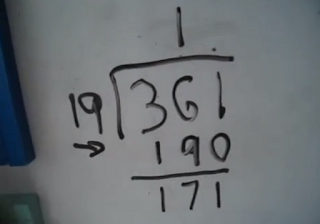 1
19 361
→ 190
171